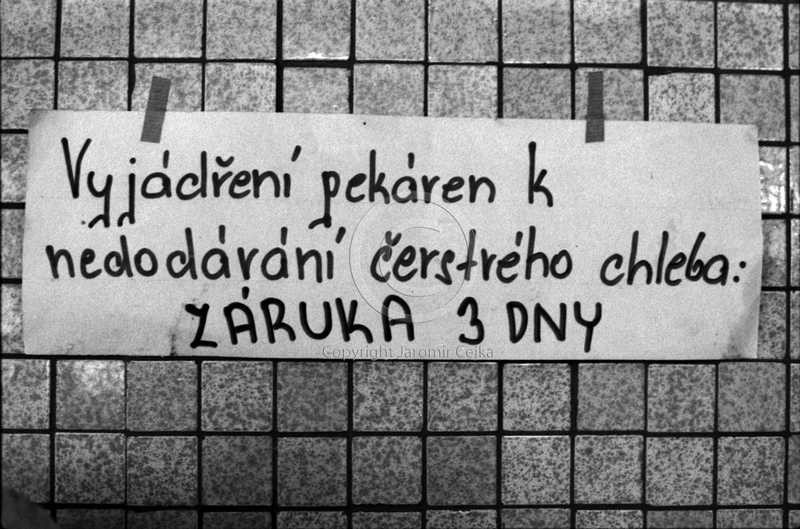 Vyjádření pekáren k
nedodávání čerstvého chleba:
ZÁRUKA 3 DNY
Copyright Jaromír Čejka